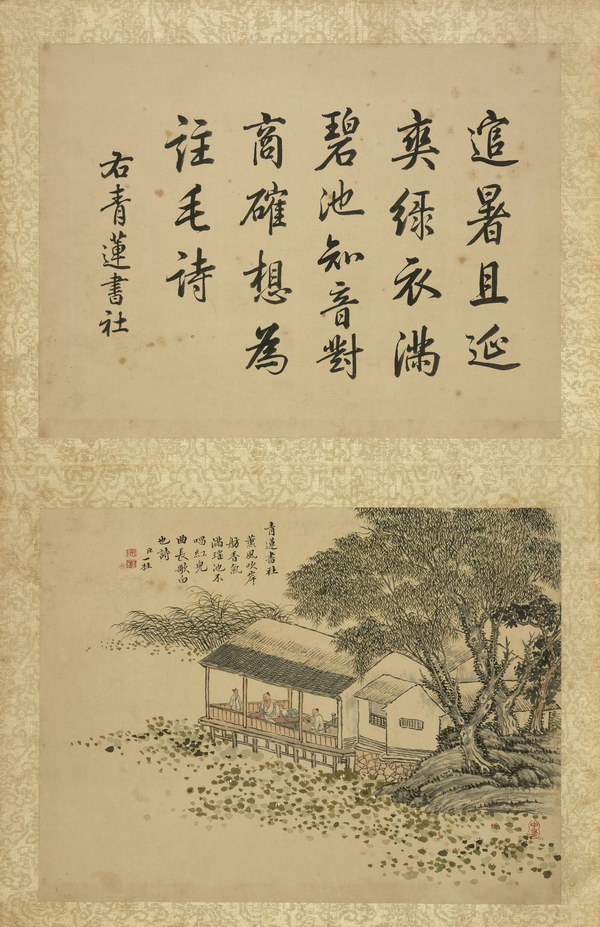 逭暑且延
爽綠衣滿
碧池知音對
商確想為
註毛詩
右青蓮書社
青蓮書社
薰風吹岸
舫香氣
滿瑤池不
唱紅兒
曲長歌白
也詩
一桂